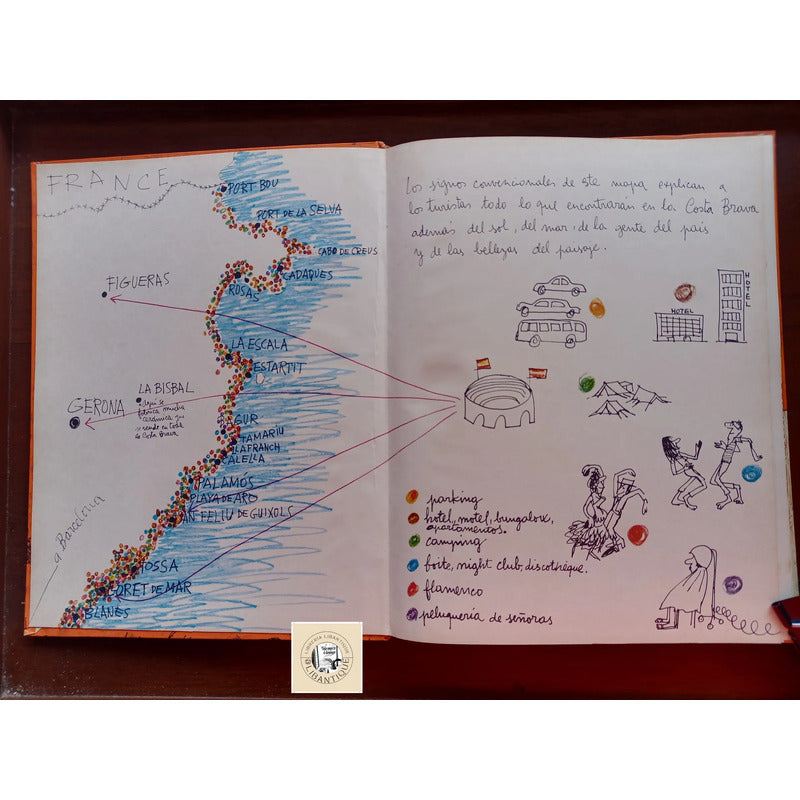 FRANCE
PORT BOU
PORT DE LA SELVA
CABO DE CREUS
CADAQUES
ROSAS
FIGUERAS
LA ESCALA
ESTARTIT
LA BISBAL
Aquí se
fabrica mucha
cerámica que
se vende en toda
la Costa Brava
GERONA
AGUR
TAMARIU
LLAFRANCH
CALELLA
PALAMÓS
PLAYA DE ARO
SAN FELIU DE GUIXOLS
a Barcelona
TOSSA
LLORET DE MAR
BLANES
Los signos convencionales de este mapa explican a
los turistas todo lo que encontraran en la Costa Brava
además del sol, del mar, de la gente del país
y de las bellezas del paisaje.
HOTEL
HOTEL
parking
hotel, motel, bungalow,
apartamentos.
camping
boite, night club, discothèque.
flamenco
peluquería de señoras
LIBRERIA LIBANTIQUE
LIBANTIQUE